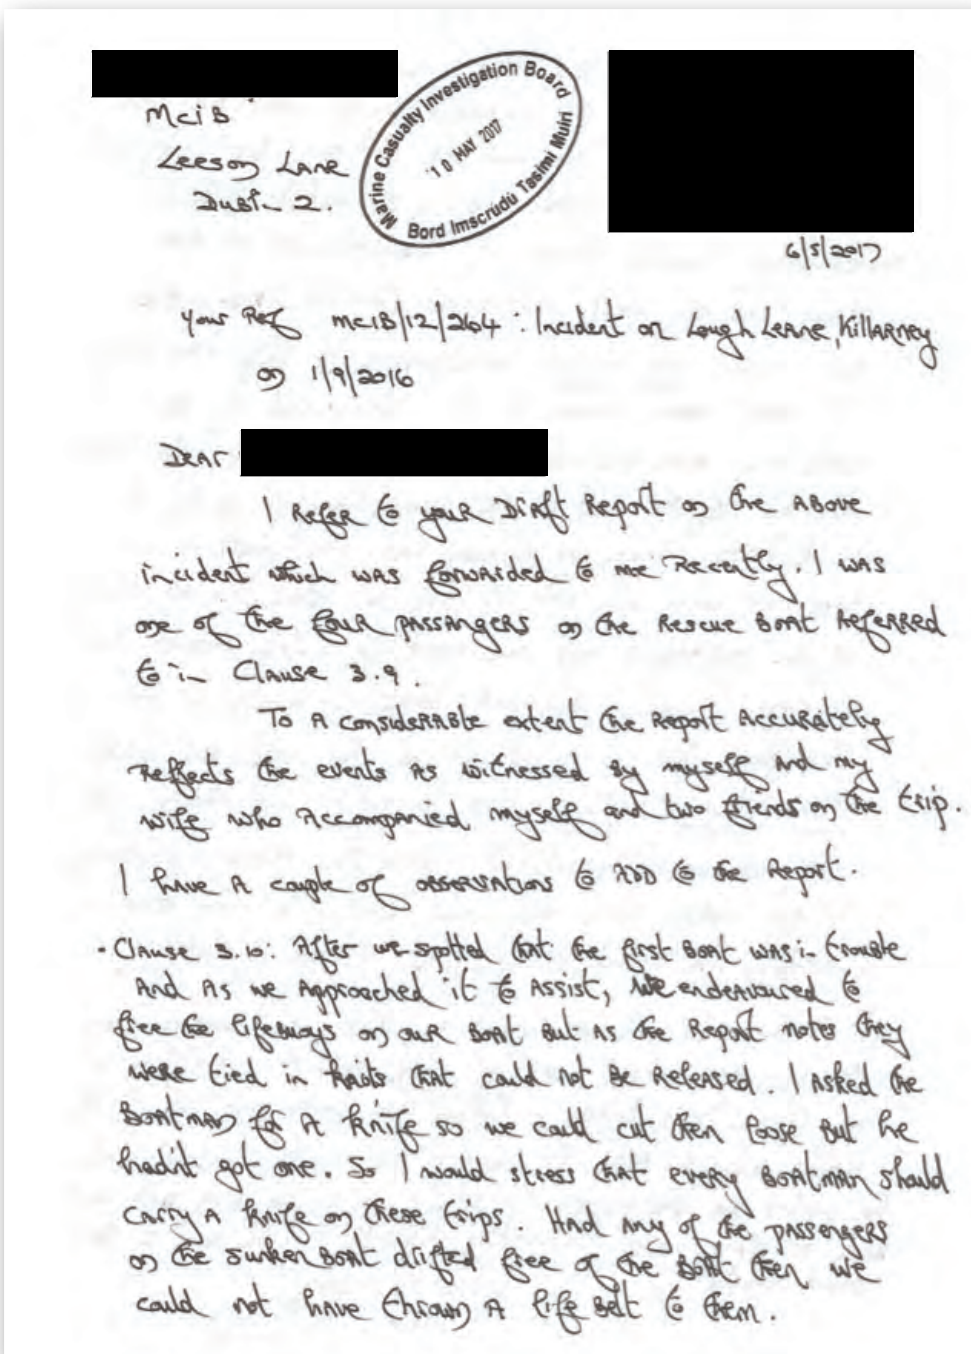 MCIB
Leeson Lane
Dublin 2.
Marine Casualty Investigation Board
10 MAY 2017
Bord Imscrúdú Taismí Muirí
6/5/2017
Your Ref MCIB/12/264 : Incident on Lough Leane, Killarney
on 1/9/2016
Dear
I refer to your Draft Report on the above
incident which was forwarded to me recently. I was
one of the four passangers on the rescue boat referred
to in Clause 3.9.
To a considerable extent the report accurately
reflects the events as witnessed by myself and my
wife who accompanied myself and two friends on the trip.
I have a couple of observations to add to the report.
• Clause 3.10: After we spotted that the first boat was in trouble
and as we approached it to assist, we endeavoured to
free the lifebuoys on our boat but as the report notes they
were tied in knots that could not be released. I asked the
boatman for a knife so we could cut them loose but he
hadn't got one. So I would stress that every boatman should
carry a knife on these trips. Had any of the passengers
on the sunken boat drifted free of the boat then we
could not have thrown a life belt to them.